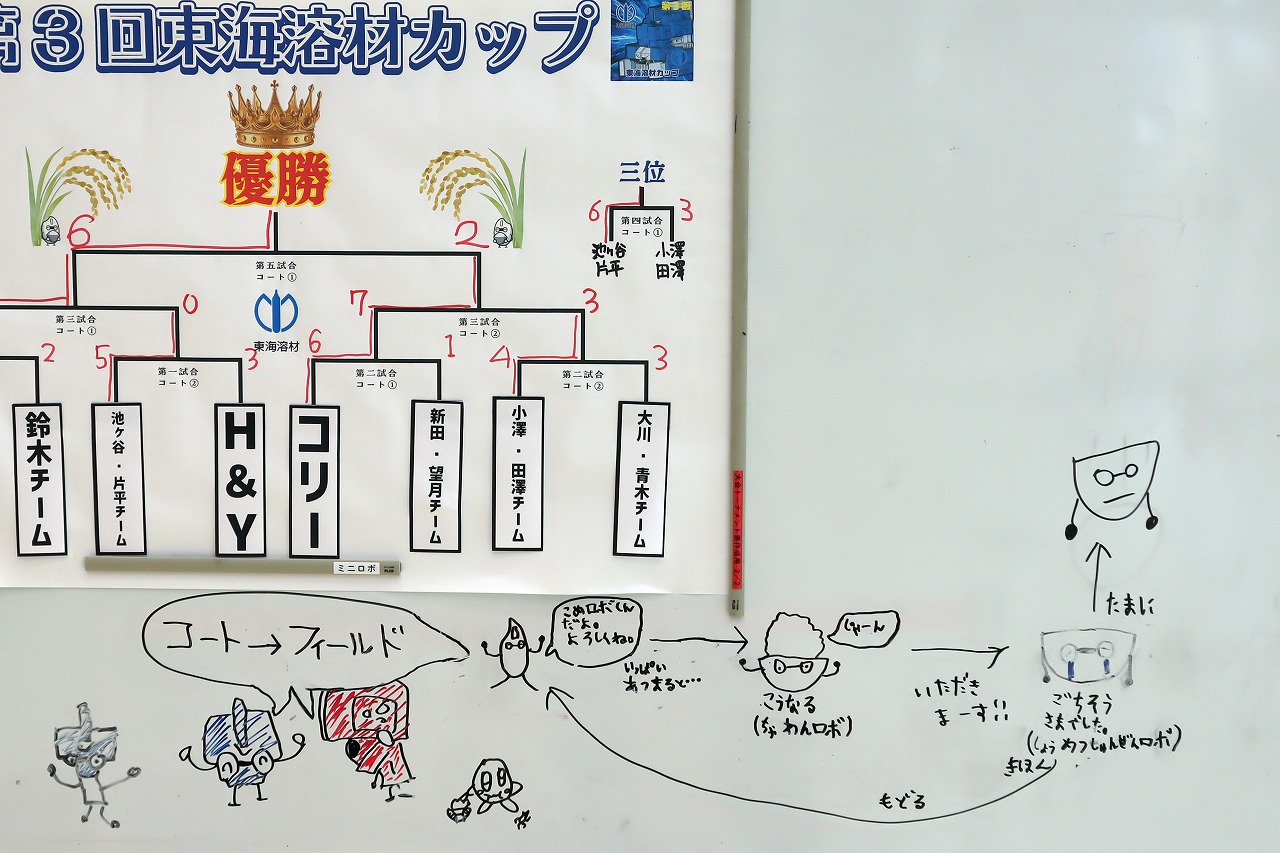 第3回東海溶材カップ
第3回
東海溶材カップ
優勝
三位
6
3
第四試合
コート①
池ヶ谷
片平
小澤
田澤
6
2
第五試合
コート①
0
第三試合
コート①
東海溶材
7
3
第三試合
コート②
2
5
3
第一試合
コート②
6
1
第二試合
コート①
4
3
第二試合
コート②
鈴木チーム
池ヶ谷・片平チーム
H&Y
コリー
新田・望月チーム
小澤・田澤チーム
大川・青木チーム
ミニロボ
コート→フィールド
こめロボくん
だよ。
よろしくね。
いっぱい
あつまると…
じゃーん
こうなる
(ちゃわんロボ)
いただき
まーす!!
たまに
ごちそう
さまでした。
(しょうめつしゅんぜんロボ)
きほん
もどる